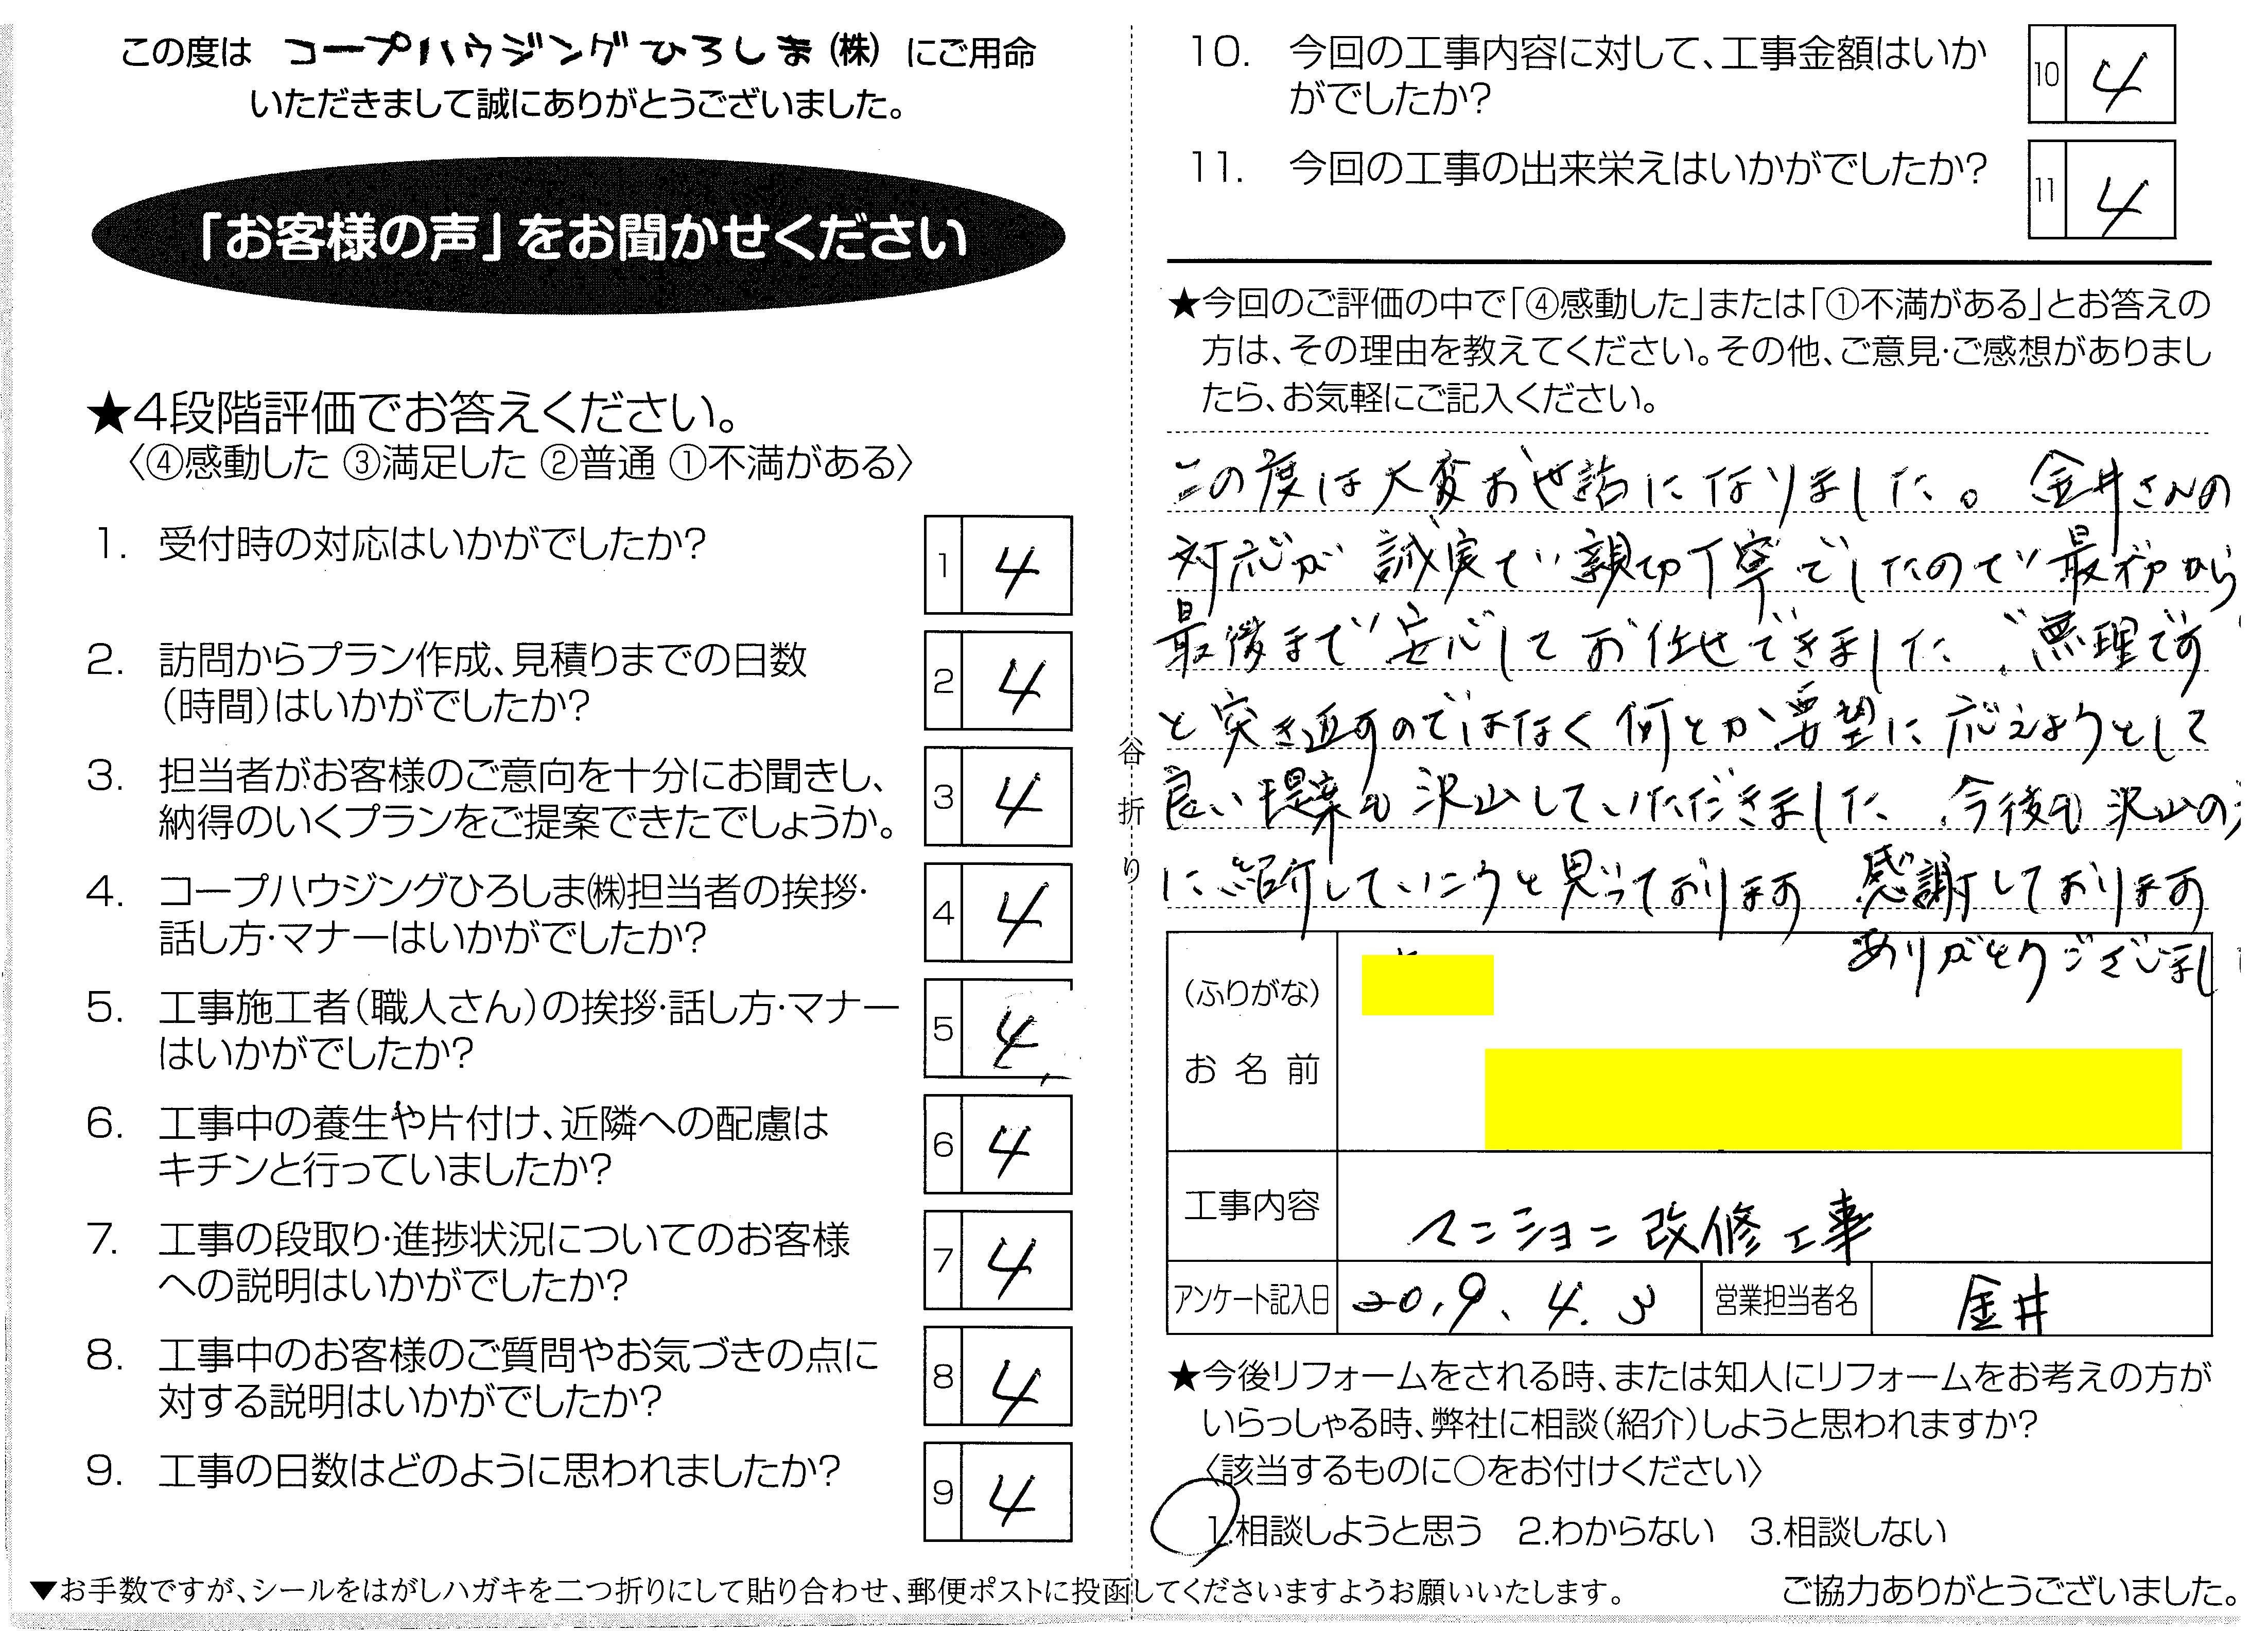 この度は コープハウジングひろしま(株) にご用命
いただきまして誠にありがとうございました。
「お客様の声」をお聞かせください
★4段階評価でお答えください。
〈④感動した ③満足した ②普通 ①不満がある〉
1. 受付時の対応はいかがでしたか? 1 4
2. 訪問からプラン作成、見積りまでの日数
(時間)はいかがでしたか? 2 4
3. 担当者がお客様のご意向を十分にお聞きし、
納得のいくプランをご提案できたでしょうか。 3 4
4. コープハウジングひろしま㈱担当者の挨拶・
話し方・マナーはいかがでしたか? 4 4
5. 工事施工者(職人さん)の挨拶・話し方・マナー
はいかがでしたか? 5 4
6. 工事中の養生や片付け、近隣への配慮は
キチンと行っていましたか? 6 4
7. 工事の段取り・進捗状況についてのお客様
への説明はいかがでしたか? 7 4
8. 工事中のお客様のご質問やお気づきの点に
対する説明はいかがでしたか? 8 4
9. 工事の日数はどのように思われましたか? 9 4
谷折り
10. 今回の工事内容に対して、工事金額はいか
がでしたか? 10 4
11. 今回の工事の出来栄えはいかがでしたか? 11 4
★今回のご評価の中で「④感動した」または「①不満がある」とお答えの
方は、その理由を教えてください。その他、ご意見・ご感想がありまし
たら、お気軽にご記入ください。
この度は大変お世話になりました。金井さんの
対応が誠実で親切丁寧でしたので最初から
最後まで安心してお任せできました。"無理です"
と突き返すのではなく何とか要望に応えようとして
良い提案も沢山していただきました。今後も沢山の
に紹介していこうと思っております 感謝しております
ありがとうございまし
(ふりがな)
お名前
工事内容 マンション改修工事
アンケート記入日 2019.4.3 営業担当者名 金井
★今後リフォームをされる時、または知人にリフォームをお考えの方が
いらっしゃる時、弊社に相談(紹介)しようと思われますか?
〈該当するものに○をお付けください〉
1.相談しようと思う 2.わからない 3.相談しない
▼お手数ですが、シールをはがしハガキを二つ折りにして貼り合わせ、郵便ポストに投函してくださいますようお願いいたします。 ご協力ありがとうございました。